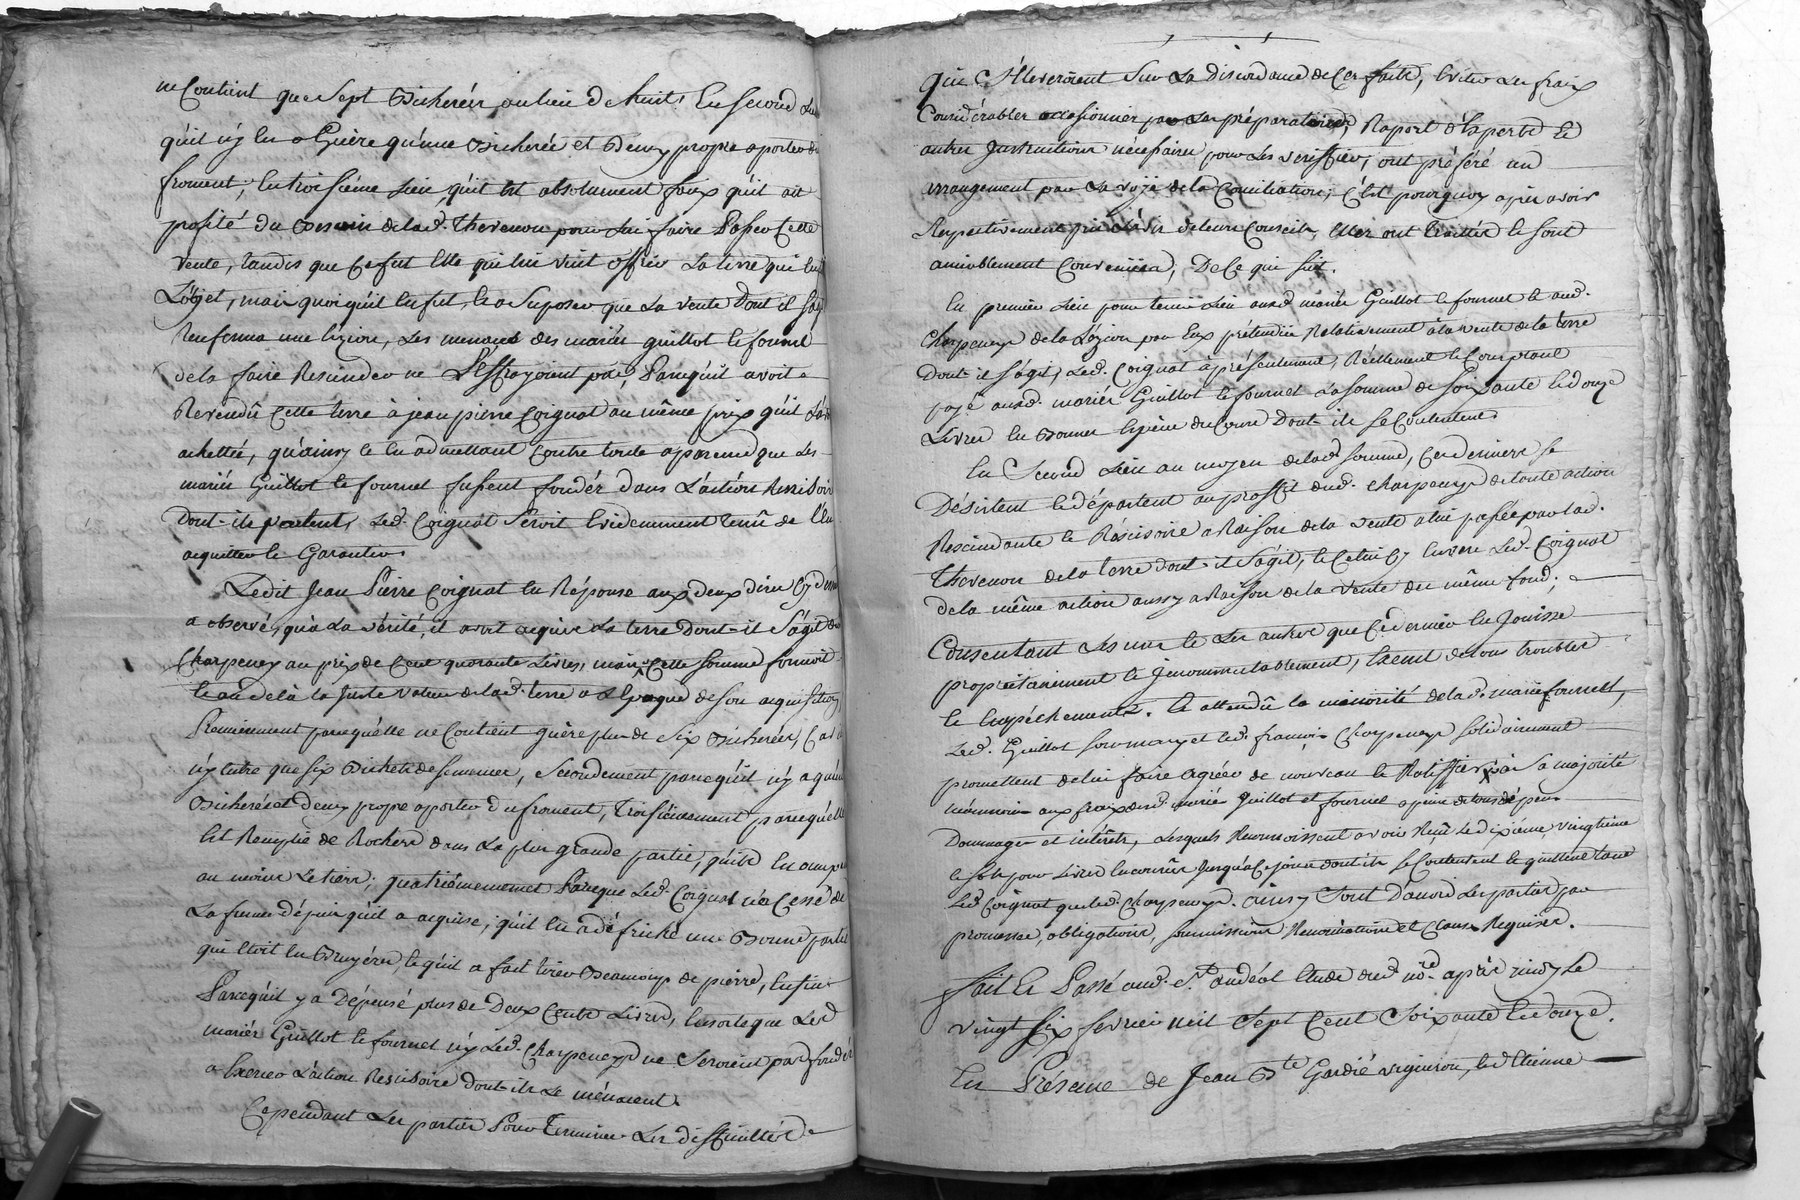 ne Contient que Sept Bicherées au lieu de huit; En second lieu
qu'il n'y en a Guère qu'une Bicherée et Demy propre a porter du
froment; En troisième Lieu, qu'il Est absolument faux qu'il ait
profité du Besoin de lad. Thevenon pour Lui faire Passer Cette
Vente, tandis que Ce fut Elle qui lui vint offrir La terre qui En
L'objet, mais quoiqu'il En fut, Et a Suposer que La Vente Dont il S'agit
Renferma une Lézion, Les menaces des mariés Guillot Et fournel
de la faire Rescinder ne L'Effrayoient pas, Parcequ'il avoit
Revendû Cette terre à jean pierre Coignat au même prix qu'il L'avoit
achettée, qu'ainsy Et En admettant Contre toute aparence que Les
mariés Guillot Et fournel fussent fondés Dans L'action Rescisoire
Dont ils parlent, Led. Coignat Seroit Evidemment tenû de L'En
acquitter Et Garantir.
Ledit Jean Pierre Coignat En Réponse aux deux dires Cy dessus
a observé, qu'à La Vérité, il avoit acquis La terre Dont il S'agit dud.
Charpeney au prix de Cent quarante Livres, mais Cette Somme formoit
Et au delà la Juste Valeur de lad. terre a L'Epoque de Son acquisition
Premierement parcequ'elle ne Contient guère plus de Six Bicherées, Car il
n'y Entre que Six Bichets de Semence, Secondement parcequ'il n'y a qu'une
Bicherée et Demy propre a porter du froment, Troisiemement parcequ'elle
Est Remplie de Rochers dans La plus grande partie, qu'ils En occupent
au moins Le tiers; quatriemement Parceque Led. Coignat n'a Cessé de
La fumer depuis qu'il a acquise, qu'il En a défriché une Bonne partie
qui Etoit En Bruyéres, Et qu'il a fait tirer Beaucoup de pierres, Enfin
Parcequ'il y a Dépensé plus de Deux Cents Livres, Ensorte que Les d.
mariés Guillot Et fournel n'y Led. Charpeney ne Seroient pas fondés
a Exercer L'action Rescisoire dont ils Le ménacent.
Cependant Les parties Pour Terminer Les difficultés
qui S'Eleveroient Sur La Discordance de Ces faits, Eviter Les fraix
Considérables occasionnés par Les préparatoires, Raport d'Experts Et
autres Instructions nécessaires pour Les Verifier, ont préféré un
arrangement par La voye de la Conciliation; C'est pourquoy après avoir
Respectivement pris L'avis de leurs Conseils, Elles ont Traittés Et Sont
amiablement Convenües, De Ce qui Suit.
En premier Lieu pour tenir Lieu auxd. mariés Guillot Et fournel Et aud.
Charpeney de la Lézion par Eux prétendüe Relativement à la Vente de la terre
Dont il S'agit, Led. Coignat a présentement, Réellement Et Comptant
payé auxd. mariés Guillot Et fournel La Somme de Soixante Et douze
Livres En Bonnes Espèces du Cours Dont ils Se Contentent
En Second Lieu au moyen de lad. Somme, Ces derniers Se
Désistent Et départent au proffit dud. Charpeney de toute action
Rescindante Et Réscisoire a Raison de la Vente a lui passée par lad.
Thevenon de la terre Dont il S'agit, Et Celui Cy Envers Led. Coignat
de la même action aussy a Raison de la Vente du même fond,
Consentant Les uns Et Les autres que Ce dernier En Jouisse
propriétairement Et Incommutablement, Exemt de tous troubles
Et Empéchements. Et attendû la minorité de lad. marie fournel,
Led. Guillot Son mary et led. françois Charpeney Solidairement
promettent de lui faire agréer de nouveau Et Ratiffier à Sa majorité
néanmoins aux fraix desd. mariés Guillot et fournel a peine de tous dépens
Dommages et intérêts, Lesquels Reconnoissent avoir Reçu Le dixiéme, vingtiéme
Et Sols pour Livres Encourûs Jusqu'à Ce jour dont ils Se Contentent Et quittent tant
Led. Coignat que led. Charpeney. ainsy Sont D'accord Les parties par
promesses, obligations, Soumissions Renonciations et Clauses Requises.
fait Et Passé aud. St. andéol Etude dud. nore. après midy Le
vingt Six fevrier mil Sept Cent Soixante Et Douze.
En Présence de Jean Bte Gardié vigneron, Et d'Etienne